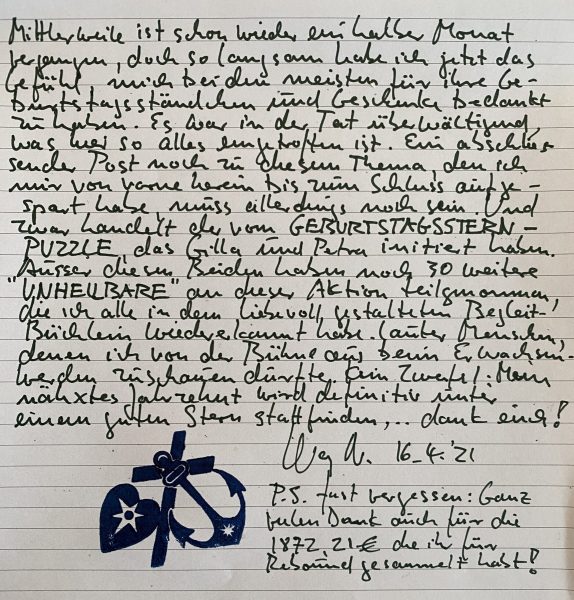 Mittlerweile ist schon wieder ein halber Monat
vergangen, doch so langsam habe ich jetzt das
Gefühl mich bei den meisten für ihre Ge-
burtstagsständchen und Geschenke bedankt
zu haben. Es war in der Tat überwältigend
was hier so alles eingetroffen ist. Ein abschlies-
sender Post noch zu diesem Thema, den ich
mir von vorne herein bis zum Schluss aufge-
spart habe, muss allerdings noch sein. Und
zwar handelt der vom GEBURTSTAGSSTERN-
PUZZLE, das Gilla und Petra initiert haben.
Ausser diesen Beiden haben noch 30 weitere
"UNHEILBARE" an dieser Aktion teilgenommen,
die ich alle in dem liebevoll gestalteten Begleit-
Büchlein wiedererkannt habe. Lauter Menschen,
denen ich von der Bühne aus beim Erwachsen-
werden zuschauen durfte. Kein Zweifel: Mein
nähxtes Jahrzehnt wird definitiv unter
einem guten Stern stattfinden,.. dank euch!
16.4.'21
P.S. fast vergessen: Ganz
vielen Dank auch für die
1872,21€ die ihr für
Rebound gesammelt habt!